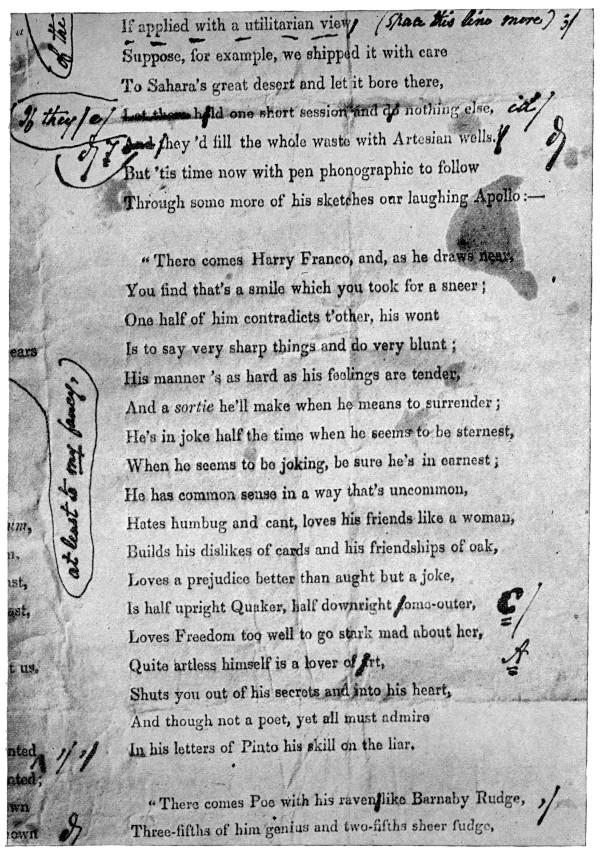 a
of the
If applied with a utilitarian view, (space this line more) ;/
Suppose, for example, we shipped it with care
To Sahara's great desert and let it bore there,
If they /e/ Let them hold one short session and do nothing else, id/
And they 'd fill the whole waste with Artesian wells.
But 'tis time now with pen phonographic to follow
Through some more of his sketches our laughing Apollo:—
"There comes Harry Franco, and, as he draws near,
You find that's a smile which you took for a sneer;
One half of him contradicts t'other, his wont
Is to say very sharp things and do very blunt;
ears
His manner 's as hard as his feelings are tender,
And a sortie he'll make when he means to surrender;
He's in joke half the time when he seems to be sternest,
When he seems to be joking, be sure he's in earnest;
at least to my fancy,
He has common sense in a way that's uncommon,
Hates humbug and cant, loves his friends like a woman,
Builds his dislikes of cards and his friendships of oak,
Loves a prejudice better than aught but a joke,
Is half upright Quaker, half downright come-outer, C/
Loves Freedom too well to go stark mad about her,
Quite artless himself is a lover of Art, A
Shuts you out of his secrets and into his heart,
And though not a poet, yet all must admire
In his letters of Pinto his skill on the liar.
t us.
nted
nted;
own
nown
"There comes Poe with his raven like Barnaby Rudge, ,/
Three-fifths of him genius and two-fifths sheer fudge,